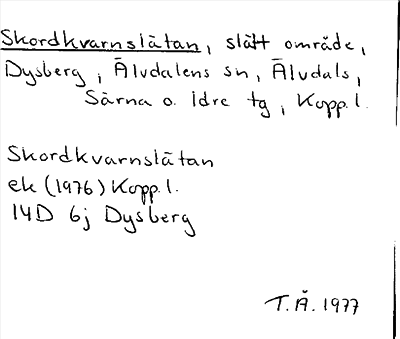 Skordkvarnslätan, slätt område,
Dysberg, Älvdalens sn, Älvdals,
Särna o. Idre tg, Kopp.l.
Skordkvarnslätan
ek (1976) Kopp.l.
14D 6j Dysberg
T.Å. 1977